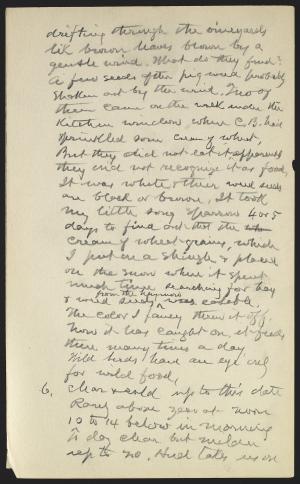 drifting through the vineyards
like brown leaves blown by a
gentle wind. What do they find?
A few seeds of the pig weed probably
shaken out by the wind. Two of
them came on the walk under the
Kitchen window where C.B. had
sprinkled some cream of wheat,
But they did not eat it, apparently
they did not recognize it as food,
It was white & their weed seeds
are black or brown. It took
my little song sparrow 4 or 5
days to find out that the
cream of wheat grains, which
I put on a shingle & placed
on the snow where it spent
much time searching for hay
& weed seeds, was eatable.
from the
The color I fancy threw it off.
Now it has caught on, it feeds
there many times a day
Wild birds have an eye only
for wild food,
6. Clear & cold up to this date
Rarely above zero at noon
10 to 14 below in morning
To day clear but milder
up to 20. Hud takes us on